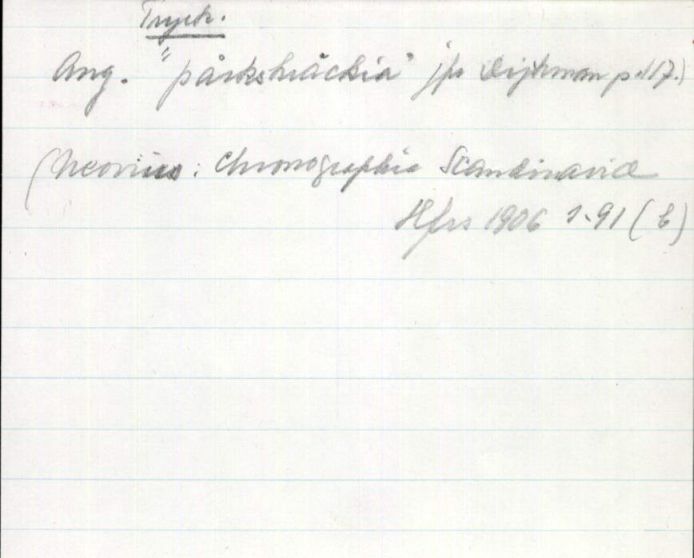 Tryck.
Ang. "pårkskräckia" jfr Dijkman p. 117.)
(Neovius: Chronographia Scandinaviæ
Hfrs 1906 s. 91 (b)